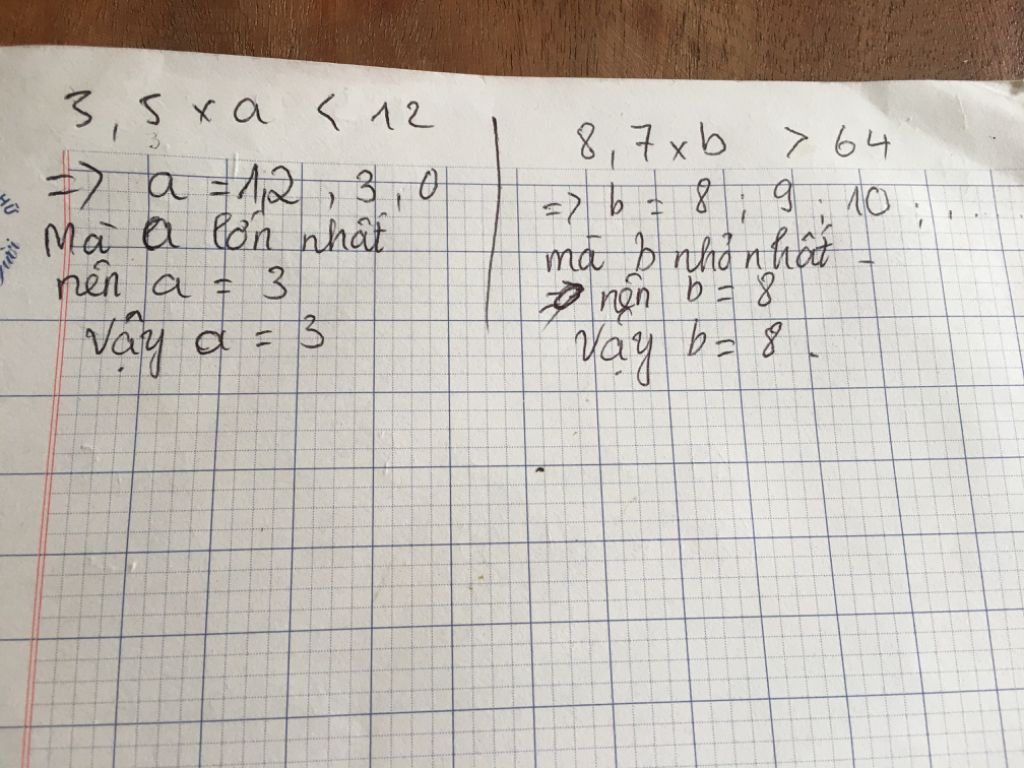 3,5 x a < 12
=> a = 1,2, 3, 0
Mà a lớn nhất
nên a = 3
Vậy a = 3
8,7 x b > 64
=> b = 8; 9; 10; ...
mà b nhỏ nhất -
nên b = 8
Vậy b = 8.